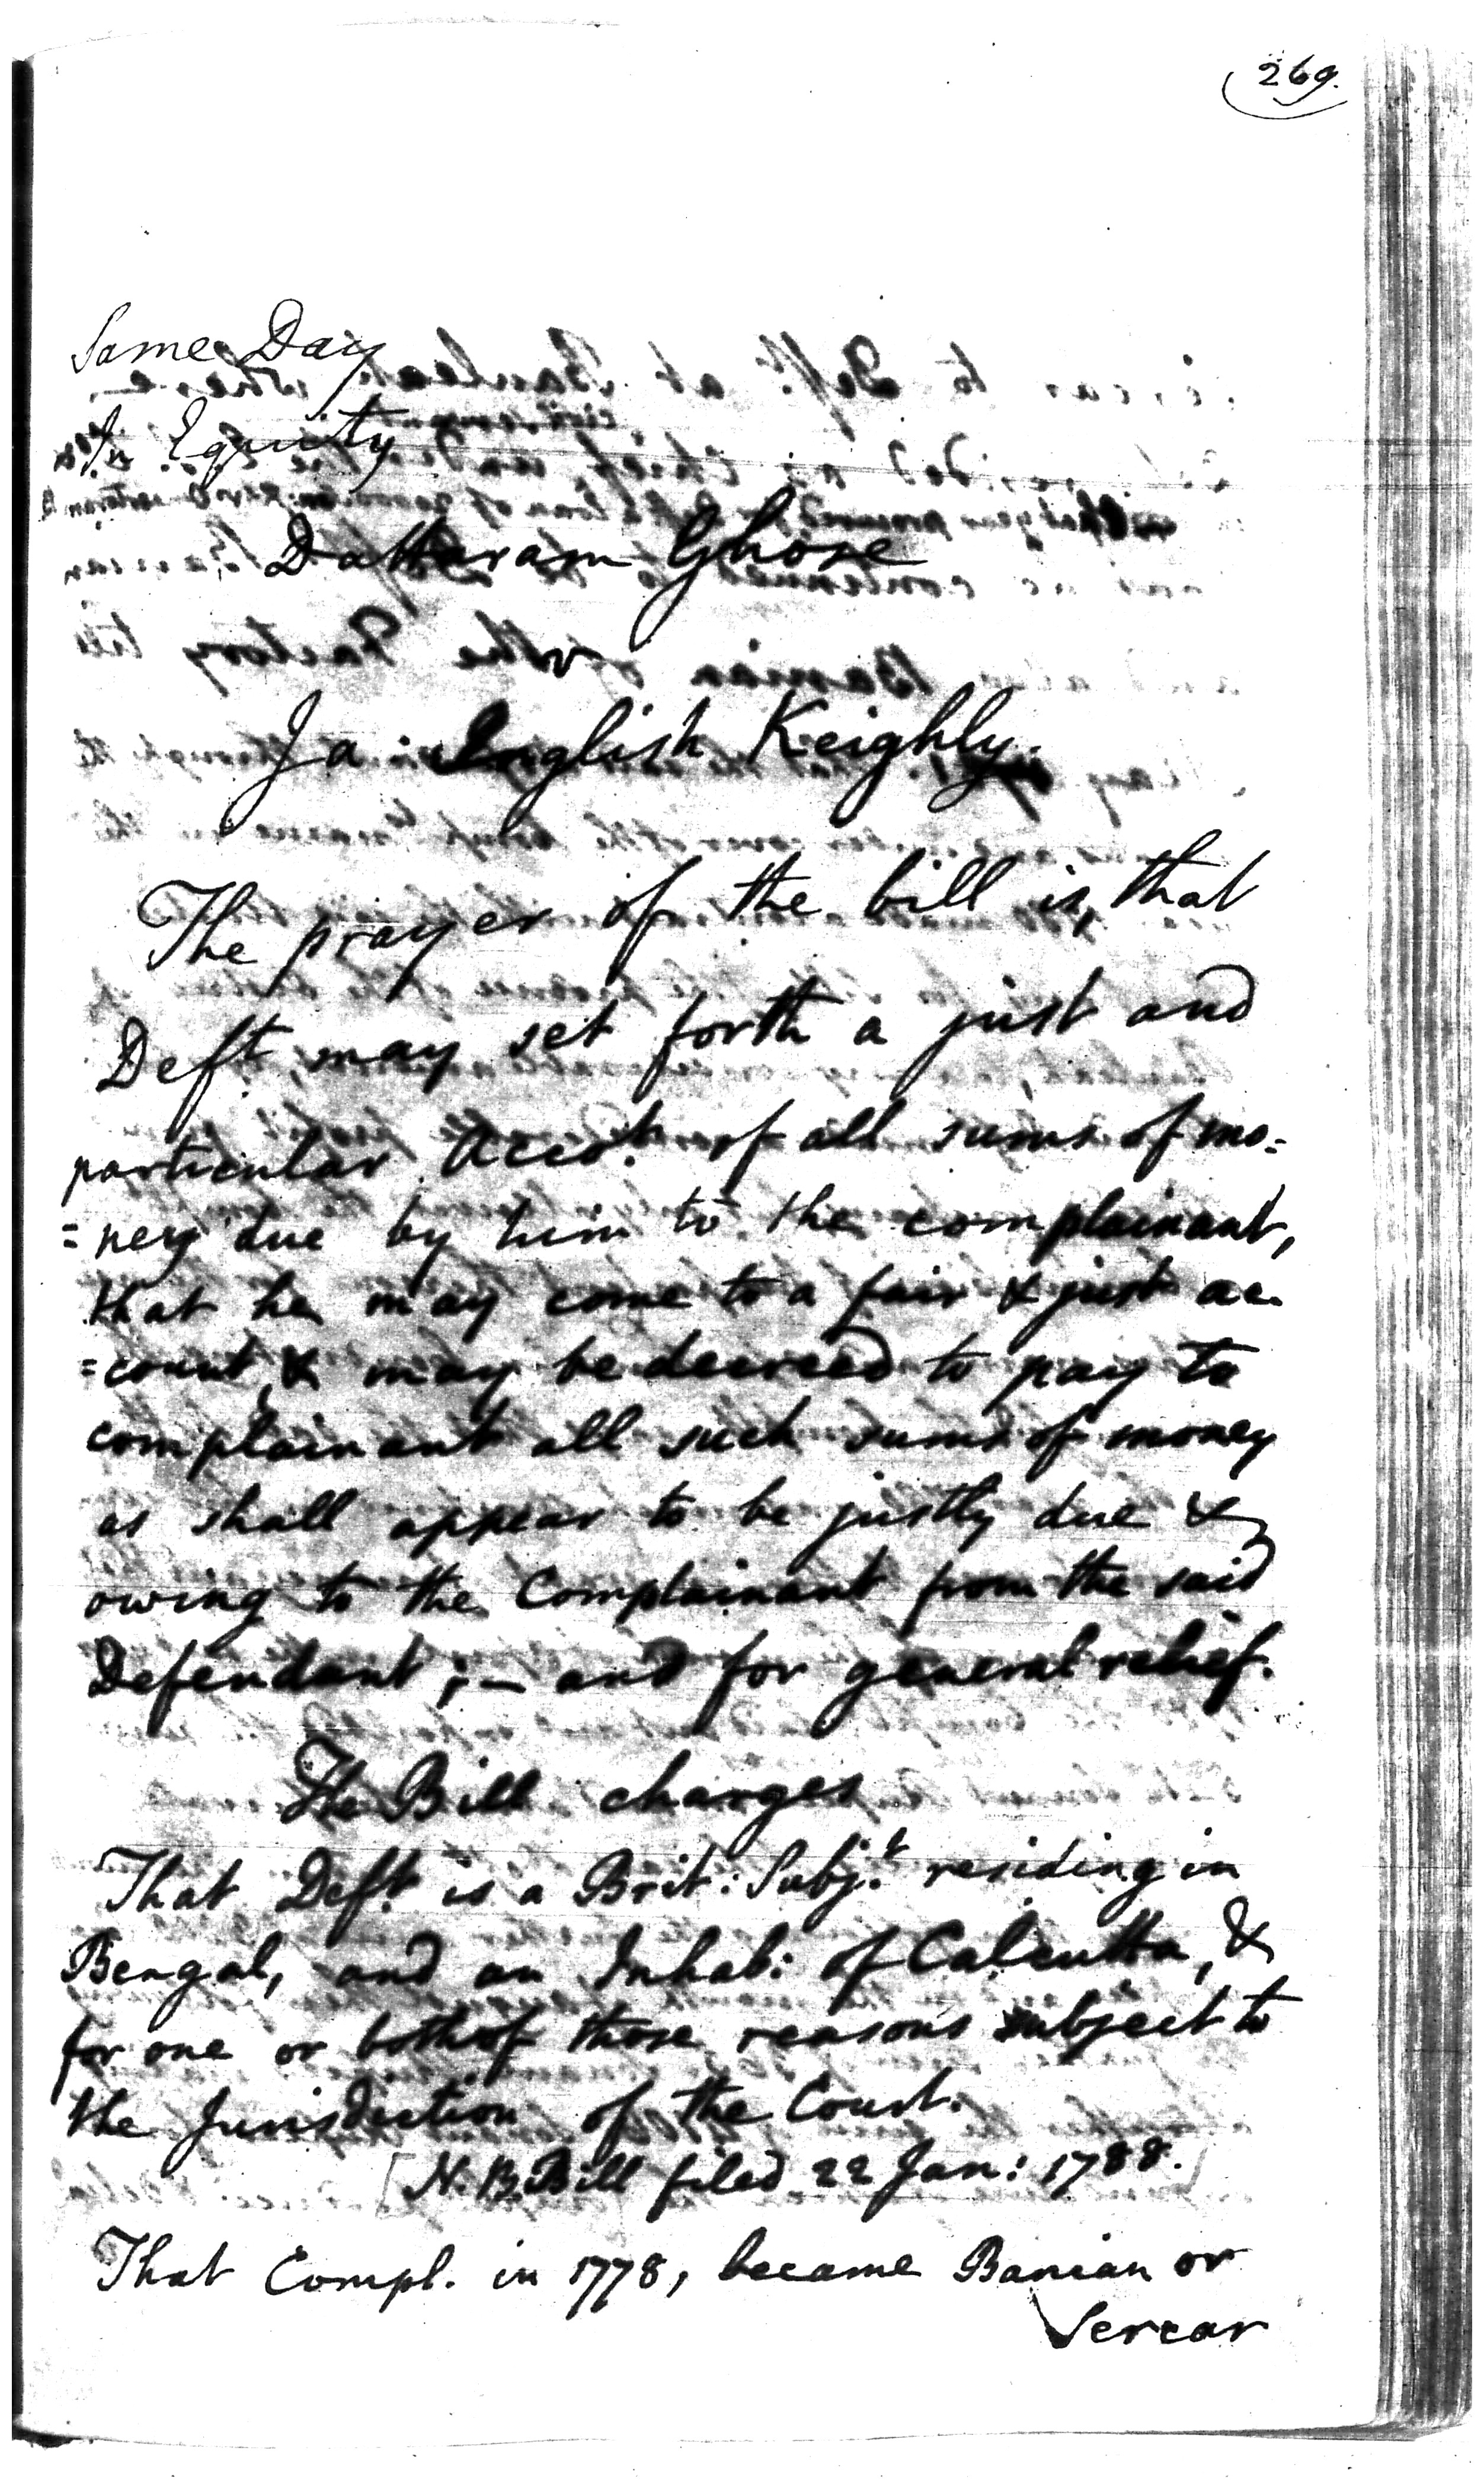 269.
Same Day
In Equity
Dattaram Ghose
v
Ja English Keighly.
The prayer of the bill is, that
Deft. may set forth a just and
particular Accot. of all sums of mo=
=ney due by him to the complainant,
that he may come to a fair & just ac
=count, & may be decreed to pay to
complainant all such sums of money
as shall appear to be justly due &
owing to the Complainant from the said
Defendant ;– and for general relief.
The Bill charges
That Deft. is a Brit: Subjt. residing in
Bengal, and an Inhab: of Calcutta, &
for one or both of those reasons subject to
the Jurisdiction of the Court.
[N.B. Bill filed 22 Jan: 1788.]
That Compl. in 1778, became Banian or
Sercar